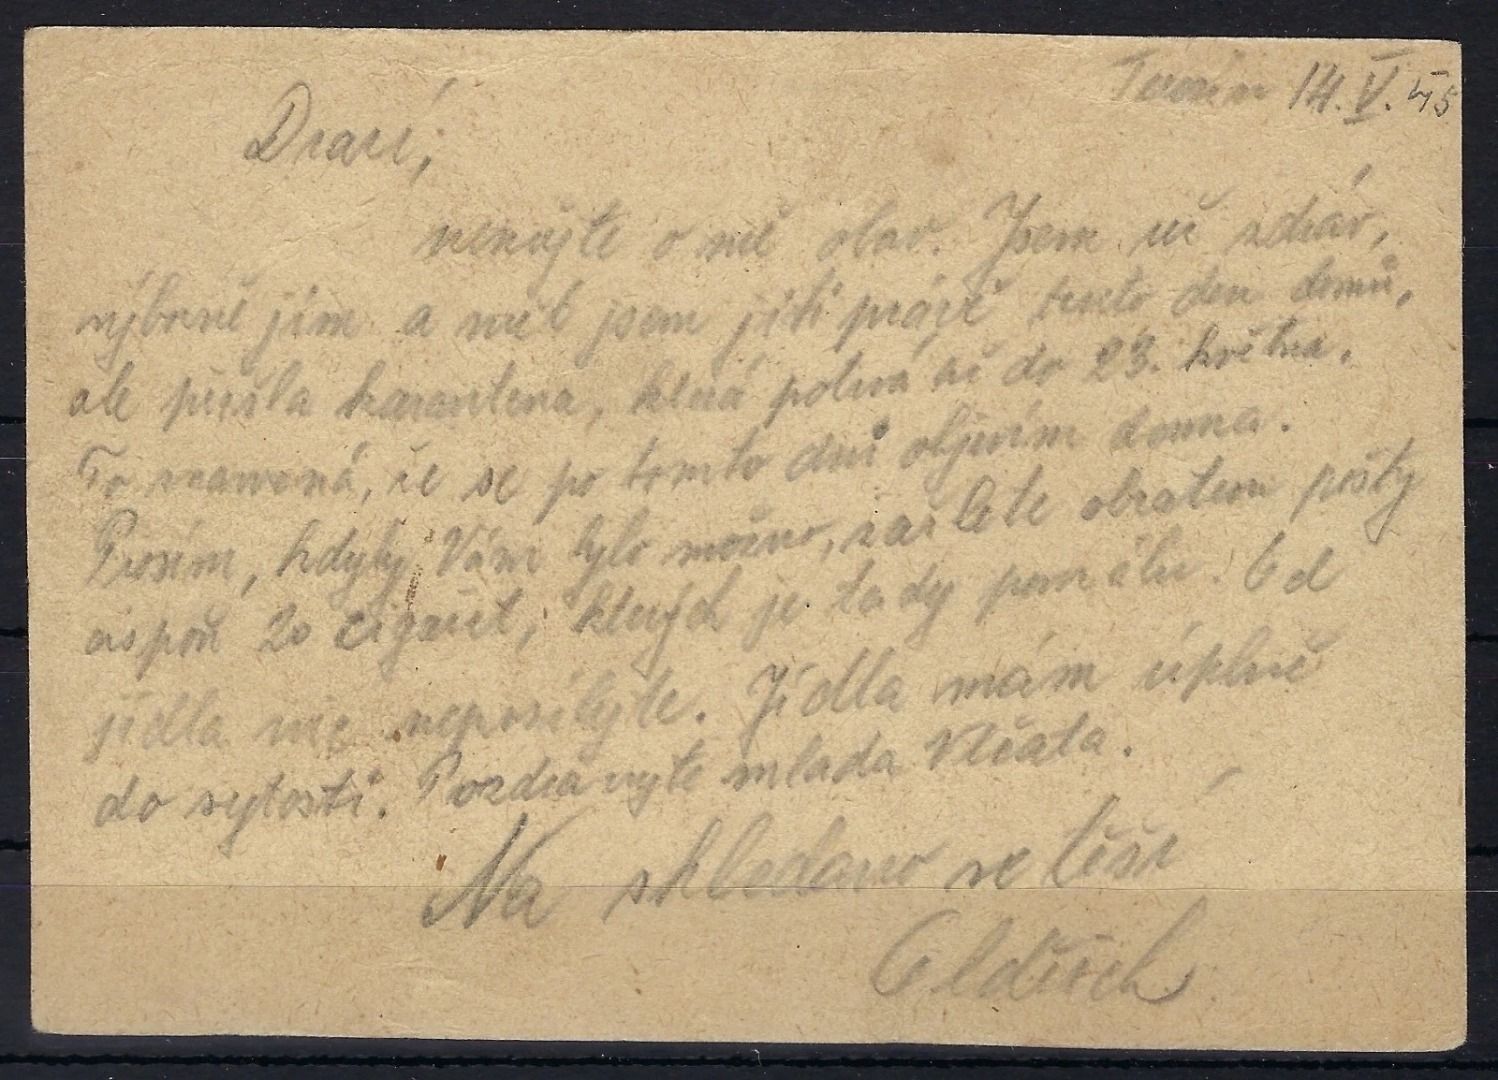 Terezín 14.V.45
Drazí,
nemějte o mě obav. Jsem už zdráv,
výborně jím a měl jsem jíti právě tento den domů,
ale přišla karanténa, která potrvá až do 23. května.
To znamená, že se po tomto dni objevím doma.
Prosím, kdyby Vám bylo možno, zašlete obratem pošty
aspoň 20 cigaret, kterých je tady pomálu. Od
jídla nic neposílejte. Jídla mám úplně
do sytosti. Pozdravujte mladá Vlčata.
Na shledanou se těší
Oldřich